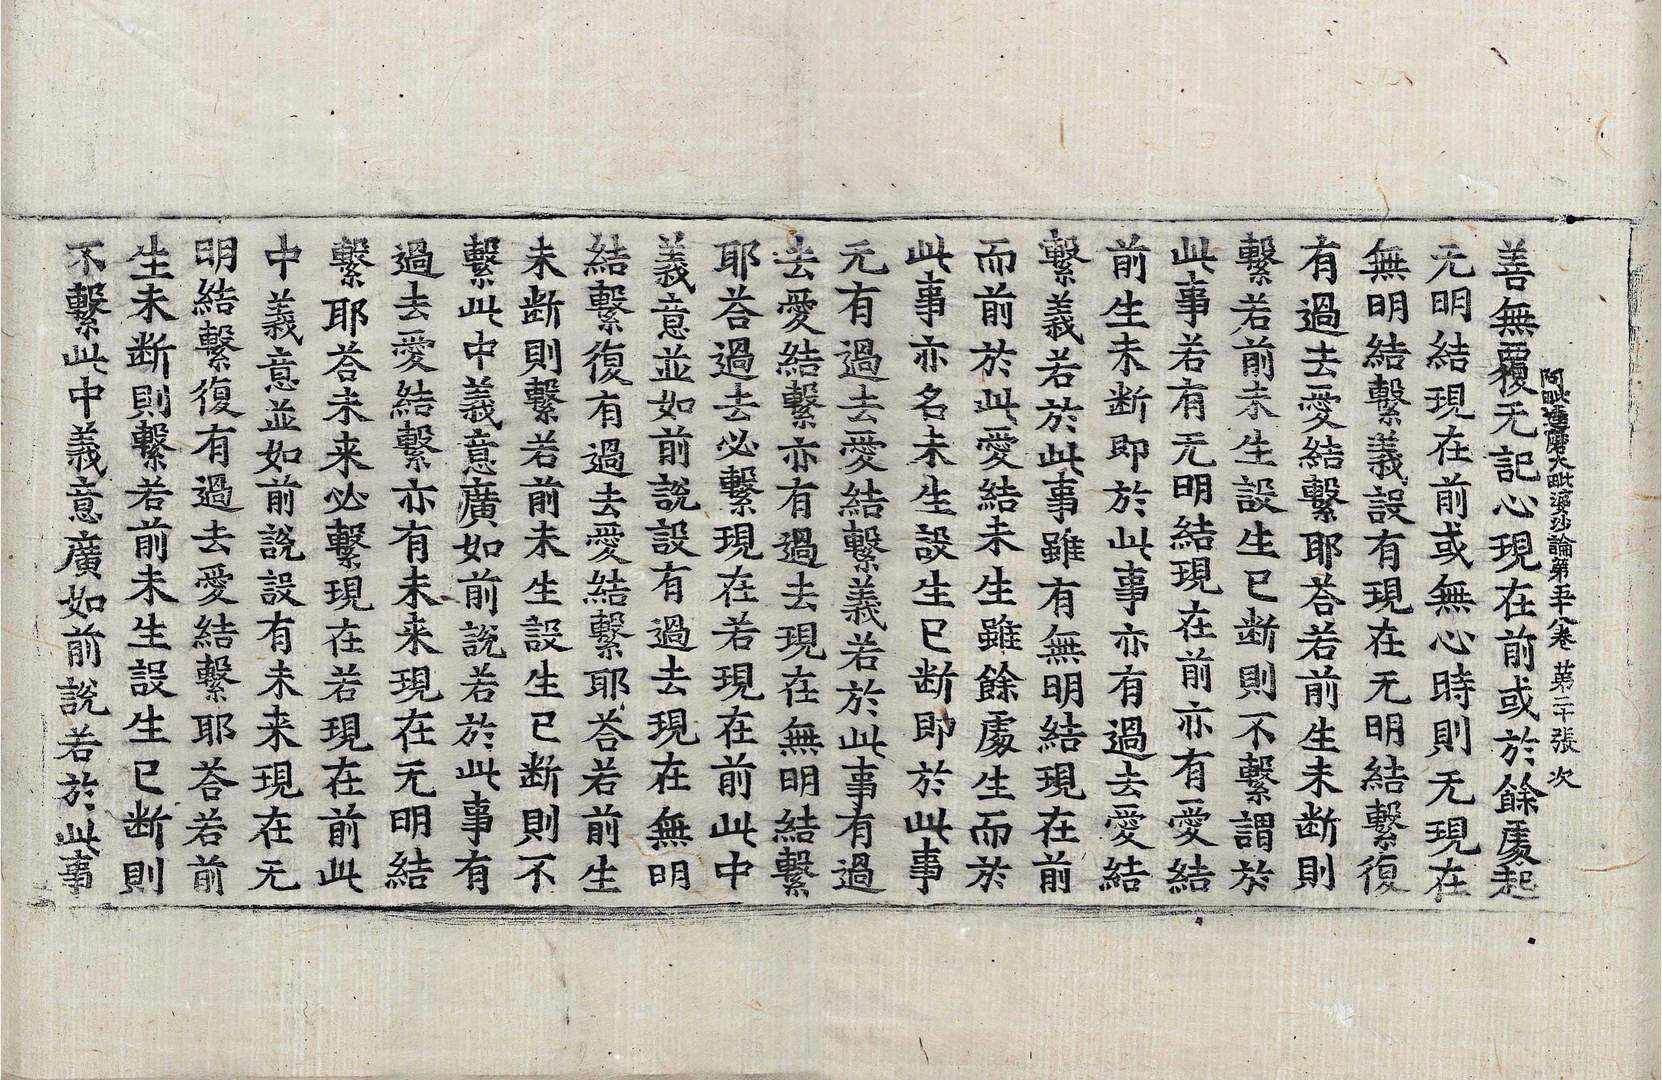 阿毗達磨大毗婆沙論第五十八卷 苐二十張 次
善無覆无記心現在前或於餘處起
无明結現在前或無心時則无現在
無明結繫義設有現在无明結繫復
有過去愛結繫耶荅若前生未断則
繫若前未生設生已断則不繫謂於
此事若有无明結現在前亦有愛結
前生未断即於此事亦有過去愛結
繫義若於此事雖有無明結現在前
而前於此愛結未生雖餘處生而於
此事亦名未生設生已断即於此事
元有過去愛結繫義若於此事有過
去愛結繫亦有過去現在無明結繫
耶荅過去必繫現在若現在前此中
義意並如前說設有過去現在無明
結繫復有過去愛結繫耶荅若前生
未断則繫若前未生設生已断則不
繫此中義意廣如前說若於此事有
過去愛結繫亦有未来現在无明結
繫耶荅未来必繫現在若現在前此
中義意並如前說設有未来現在无
明結繫復有過去愛結繫耶荅若前
生未断則繫若前未生設生已断則
不繫此中義意廣如前說若於此事